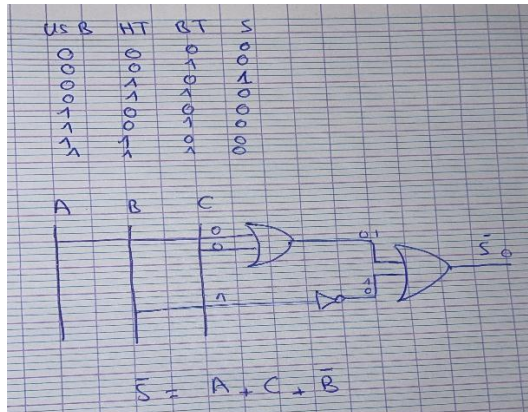 USB HT BT S
0 0 0 0
0 0 1 0
0 1 0 1
0 1 1 0
1 0 0 0
1 0 1 0
1 1 0 0
1 1 1 0
A B C
0
0
0 1
S̄ 0
1
1
0
S̄ = A + C + B̄